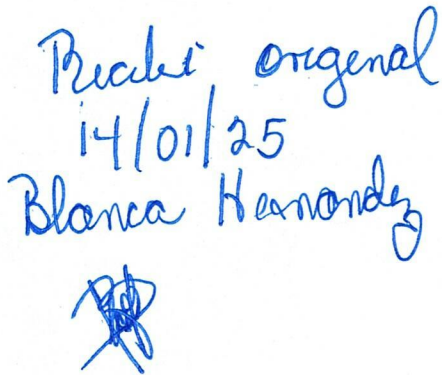 Recibi original
14/01/25
Blanca Hernandez